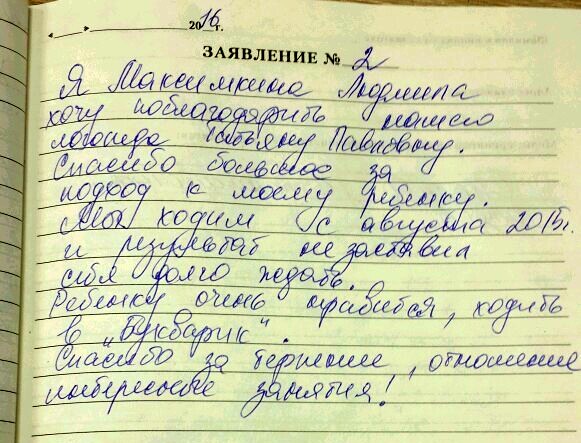 2016 г.
ЗАЯВЛЕНИЕ № 2
Я Максимкина Людмила
хочу поблагодарить нашего
логопеда Татьяну Павловну.
Спасибо большое за
подход к моему ребенку.
Мы ходим с августа 2015г.
и результат не заставил
себя долго ждать.
Ребенку очень нравится, ходить
в "Букварик".
Спасибо за терпение, отношение
интересные занятия!